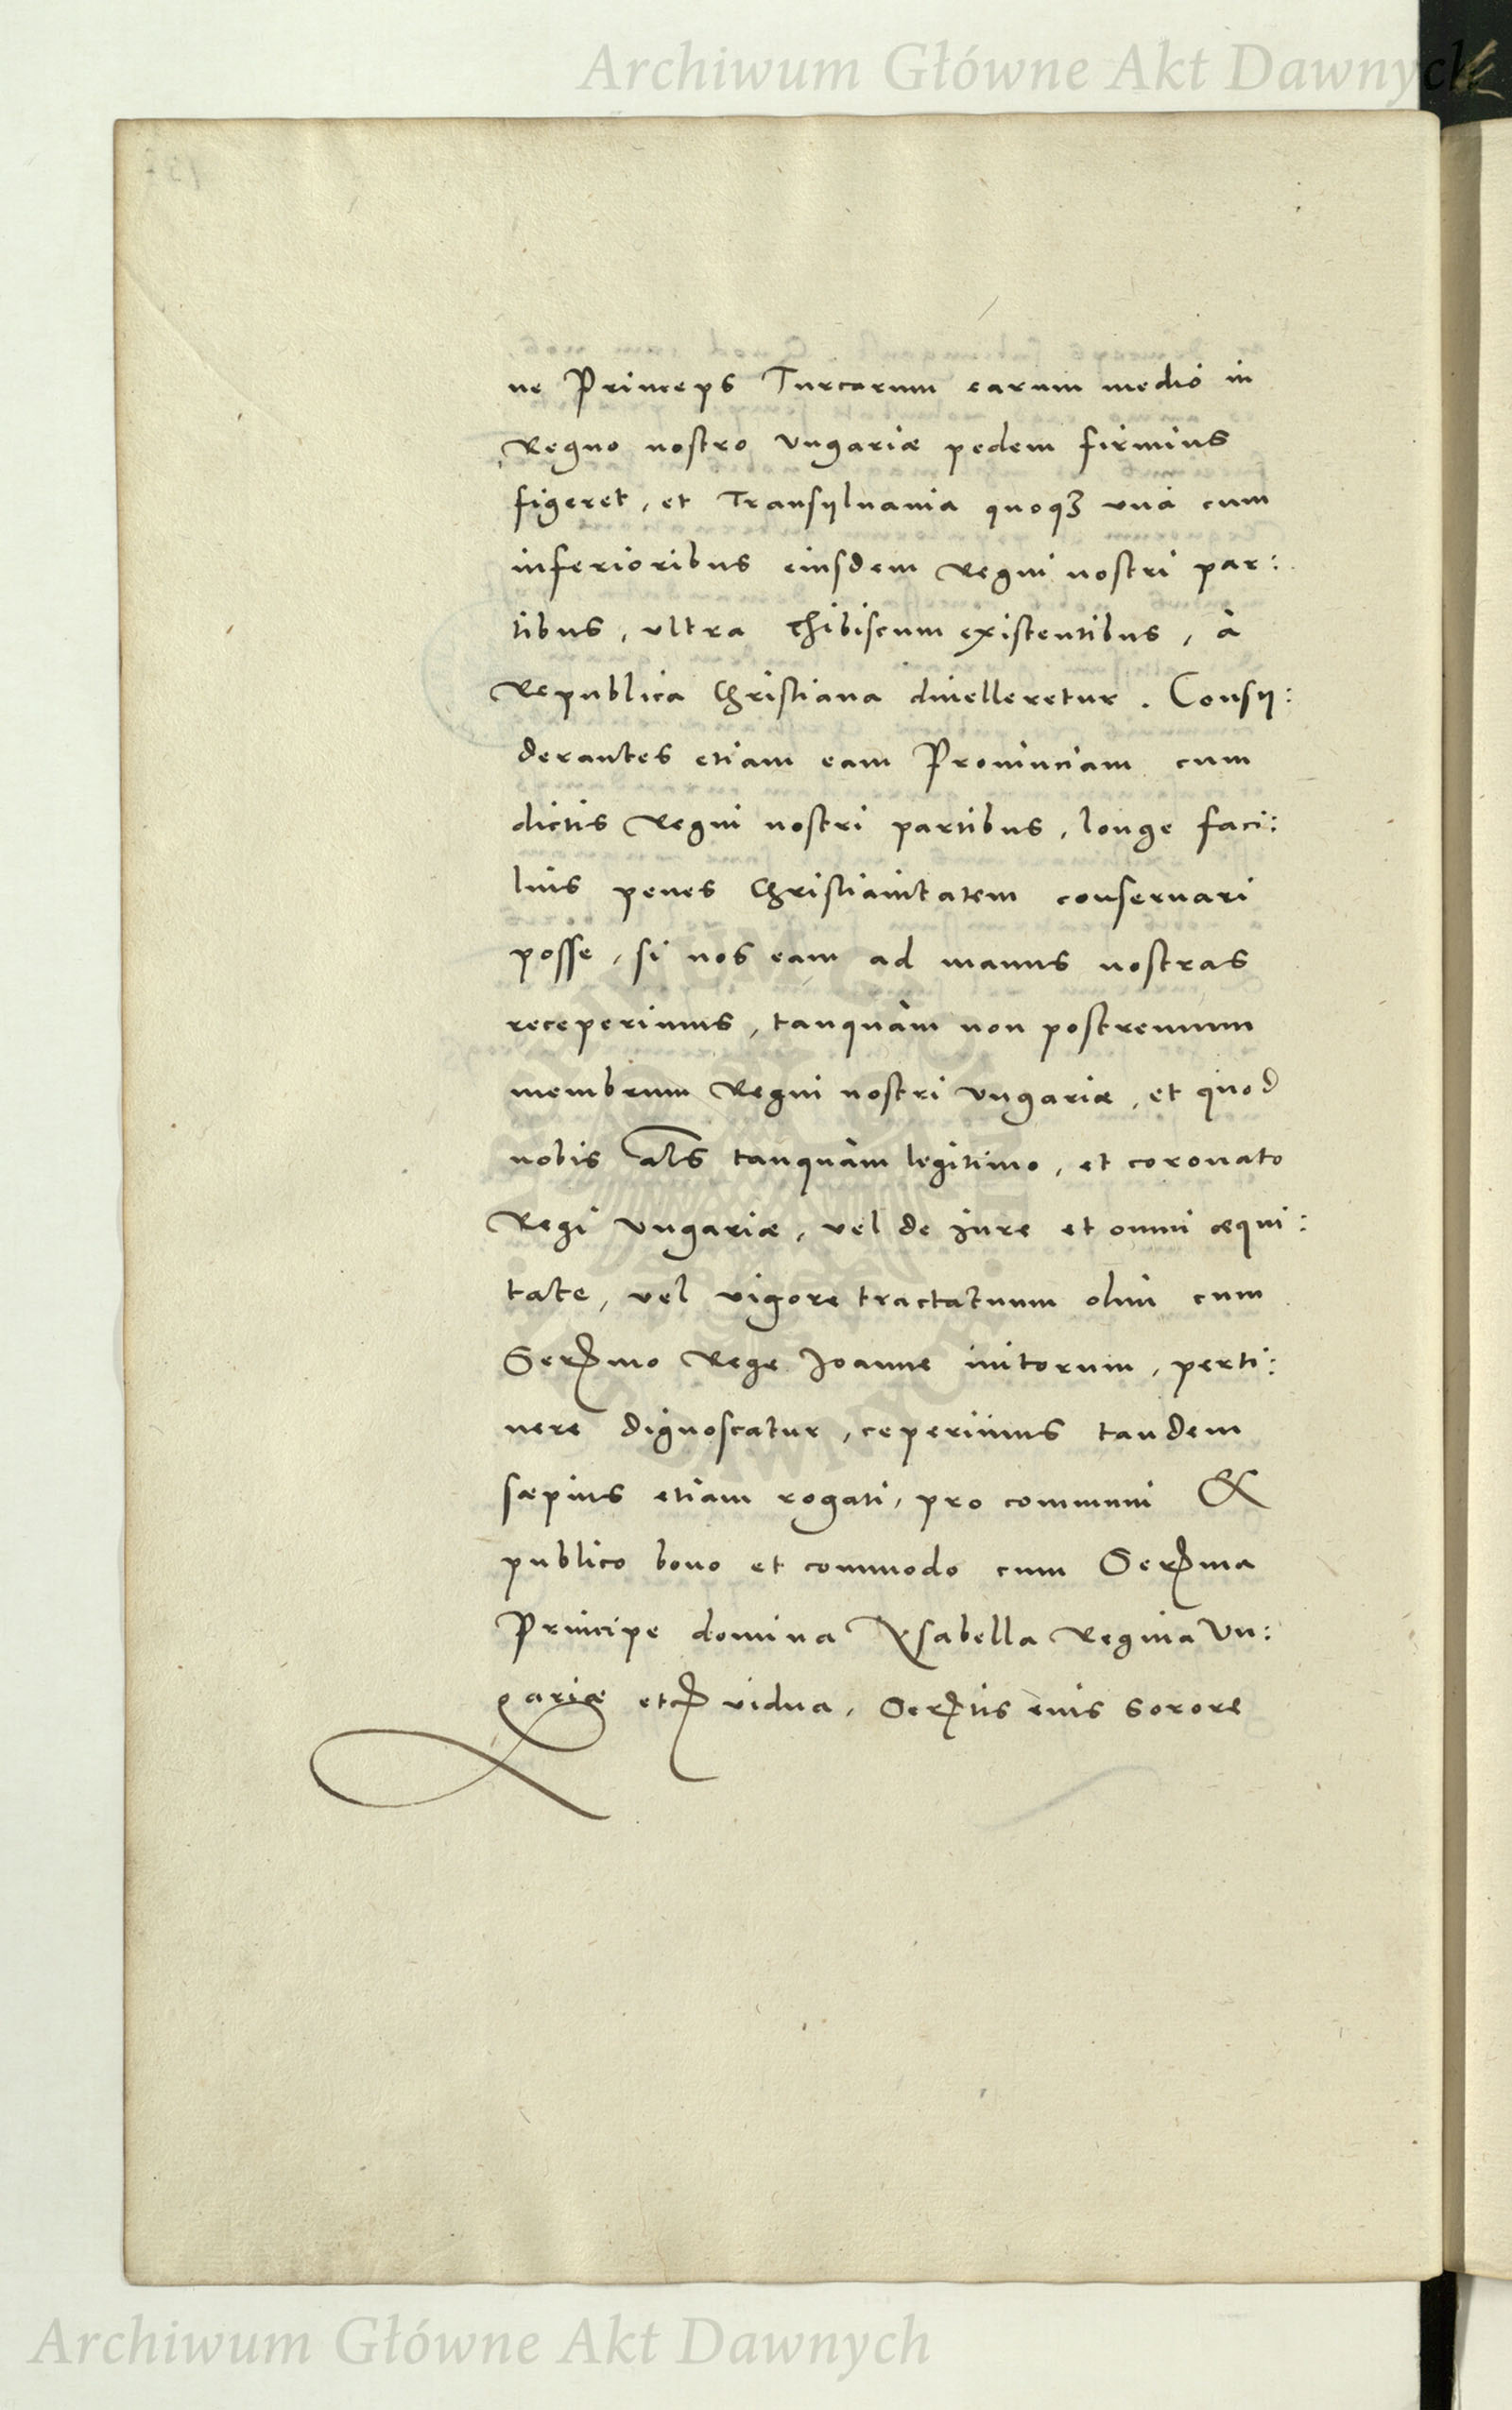 Archiwum Główne Akt Dawnych
ne Princeps Turcarum earum medio in
Regno nostro Vngariæ pedem firmius
figeret, et Transÿluania quoqꝫ vnà cum
inferioribus eiusdem Regni nostri par:
tibus, vltra Thibiscum existentibus, à
Republica Christiana diuelleretur. Consÿ:
derantes etiam eam Prouinciam cum
dictis Regni nostri partibus, longe faci:
lius penes Christianitatem conseruari
posse, si nos eam ad manus nostras
receperimus, tanquàm non postremum
membrum Regni nostri Vngariæ, et quod
nobis als tanquàm legitimo, et coronato
Regi Vngariæ, vel de iure et omni æqui:
tate, vel vigore tractatuum olim cum
Sermo Rege Joanne initorum, perti:
nere dignoscatur, ceperimus tandem
sæpius etiam rogati, pro communi &
publico bono et commodo cum Serma
Principe domina Ysabella Regina Vn:
gariæ etc vidua, Sertis eius sorore
Archiwum Główne Akt Dawnych